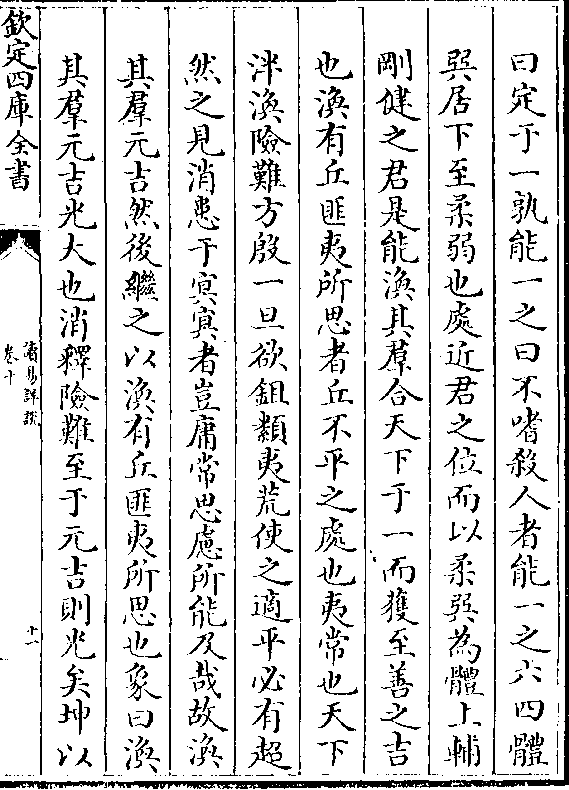 曰定于一孰能一之曰不嗜殺人者能一之六四體
巽居下至柔弱也處近君之位而以柔巽為體上輔
剛健之君是能渙其羣合天下于一而獲至善之吉
也渙有丘匪夷所思者丘不平之處也夷常也天下
泮渙險難方殷一旦欲鉏類夷荒使之適平必有超
然之見消患于冥冥者豈庸常思慮所能及哉故渙
其羣元吉然後繼之以渙有丘匪夷所思也象曰渙
其羣元吉光大也消釋險難至于元吉則光矣坤以
欽定四庫全書
讀易詳說
卷十
十一